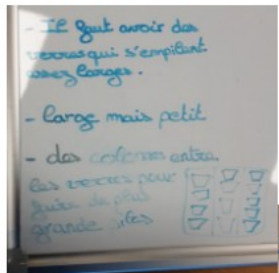 - Il faut avoir des
verres qui s'empilent
assez larges.
- large mais petit
- des colonnes entre
les verres pour
faire de plus
grande piles